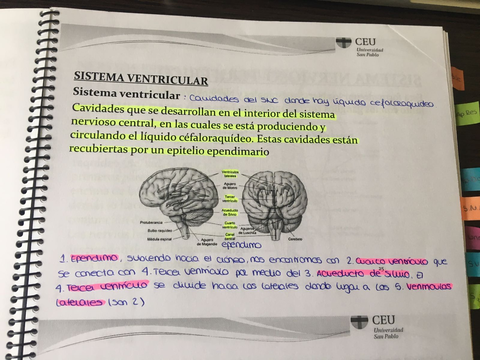 CEU
Universidad
San Pablo
SISTEMA VENTRICULAR
Sistema ventricular : cavidades del SNC donde hay líquido cefaloraquídeo
Cavidades que se desarrollan en el interior del sistema
nervioso central, en las cuales se está produciendo y
circulando el líquido céfaloraquídeo. Estas cavidades están
recubiertas por un epitelio ependimario
Ventrículos
laterales
Agujero
de Monro
Tercer
ventrículo
Acueducto
de Silvio
Cuarto
ventrículo
Protuberancia
Bulbo raquídeo
Médula espinal
Agujero
de Magendie
Canal
central
Agujero
de Luschka
Cerebelo
épendimo
1. Epéndimo, subiendo hacia el cráneo, nos encontramos con 2. Cuarto ventrículo que
se conecta con 4. Tercer ventrículo por medio del 3. Acueducto de Silvio. El
4. Tercer ventrículo se divide hacia los laterales dando lugar a los 5. Ventrículos
laterales (son 2)
CEU
Universidad
San Pablo